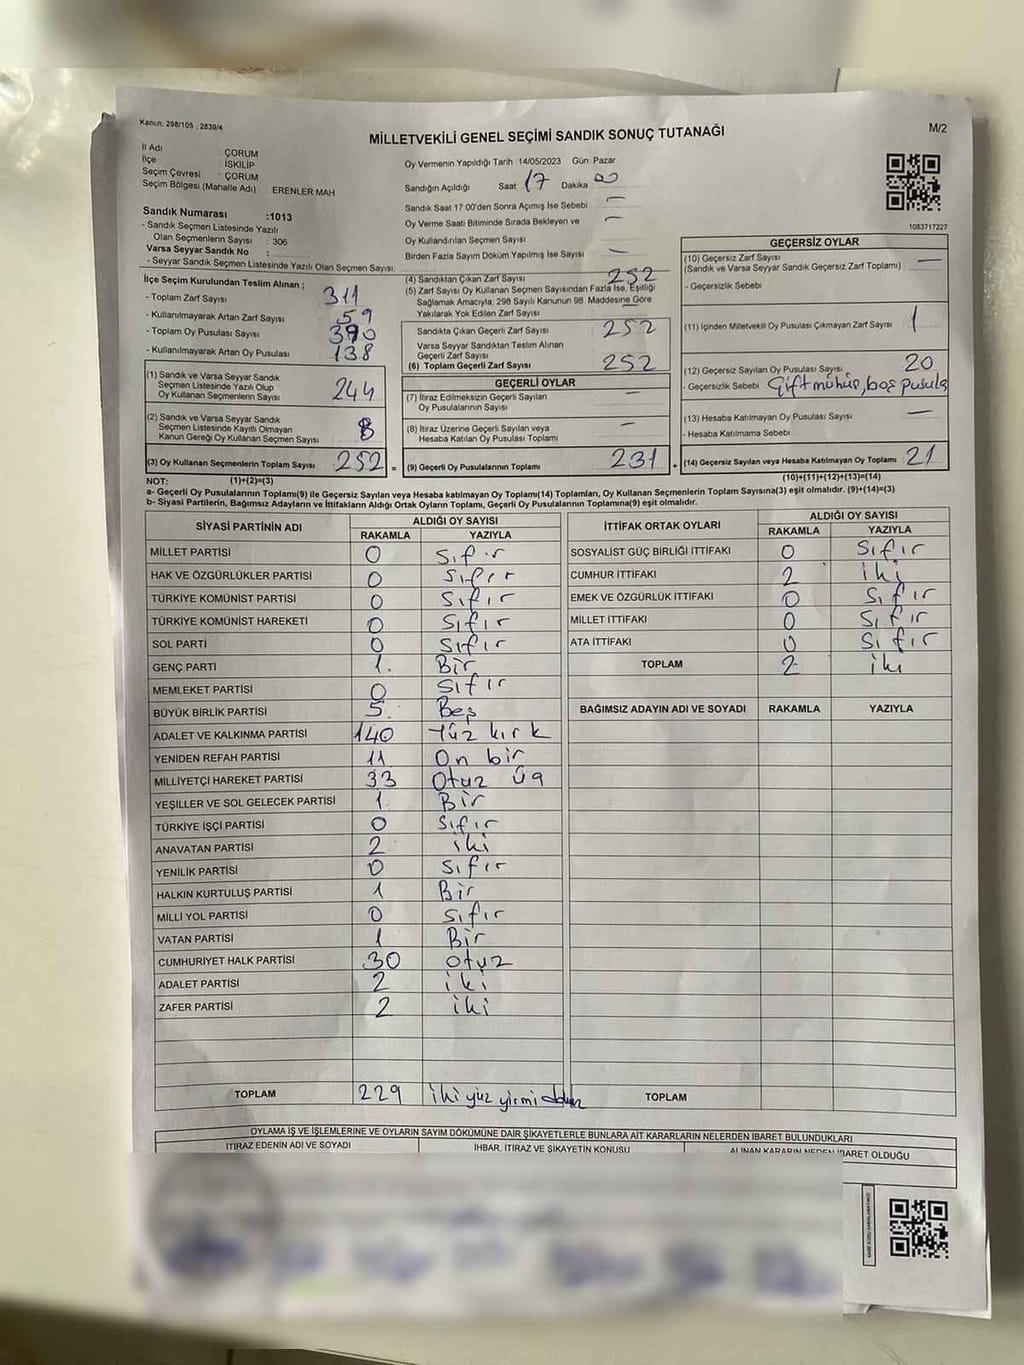 Kanun: 298/105 , 2839/4
MİLLETVEKİLİ GENEL SEÇİMİ SANDIK SONUÇ TUTANAĞI
M/2
İl Adı : ÇORUM
İlçe : İSKİLİP
Seçim Çevresi : ÇORUM
Seçim Bölgesi (Mahalle Adı) : ERENLER MAH
Sandık Numarası :1013
- Sandık Seçmen Listesinde Yazılı
Olan Seçmenlerin Sayısı : 306
Varsa Seyyar Sandık No :
- Seyyar Sandık Seçmen Listesinde Yazılı Olan Seçmen Sayısı:
Oy Vermenin Yapıldığı Tarih : 14/05/2023 Gün: Pazar
Sandığın Açıldığı Saat 17 Dakika 00
Sandık Saat 17:00'den Sonra Açımış İse Sebebi —
Oy Verme Saati Bitiminde Sırada Bekleyen ve —
Oy Kullandırılan Seçmen Sayısı
Birden Fazla Sayım Döküm Yapılmış İse Sayısı —
1083717227
İlçe Seçim Kurulundan Teslim Alınan ;
- Toplam Zarf Sayısı 311
- Kullanılmayarak Artan Zarf Sayısı 59
- Toplam Oy Pusulası Sayısı 390
- Kullanılmayarak Artan Oy Pusulası 138
(1) Sandık ve Varsa Seyyar Sandık
Seçmen Listesinde Yazılı Olup
Oy Kullanan Seçmenlerin Sayısı 244
(2) Sandık ve Varsa Seyyar Sandık
Seçmen Listesinde Kayıtlı Olmayan
Kanun Gereği Oy Kullanan Seçmen Sayısı 8
(3) Oy Kullanan Seçmenlerin Toplam Sayısı 252 =
(4) Sandıktan Çıkan Zarf Sayısı 252
(5) Zarf Sayısı Oy Kullanan Seçmen Sayısından Fazla İse, Eşitliği
Sağlamak Amacıyla; 298 Sayılı Kanunun 98. Maddesine Göre
Yakılarak Yok Edilen Zarf Sayısı —
Sandıkta Çıkan Geçerli Zarf Sayısı 252
Varsa Seyyar Sandıktan Teslim Alınan
Geçerli Zarf Sayısı
(6) Toplam Geçerli Zarf Sayısı 252
GEÇERLİ OYLAR
(7) İtiraz Edilmeksizin Geçerli Sayılan
Oy Pusulalarının Sayısı —
(8) İtiraz Üzerine Geçerli Sayılan veya
Hesaba Katılan Oy Pusulası Toplamı —
(9) Geçerli Oy Pusulalarının Toplamı 231 +
GEÇERSİZ OYLAR
(10) Geçersiz Zarf Sayısı —
(Sandık ve Varsa Seyyar Sandık Geçersiz Zarf Toplamı)
- Geçersizlik Sebebi
(11) İçinden Milletvekili Oy Pusulası Çıkmayan Zarf Sayısı 1
(12) Geçersiz Sayılan Oy Pusulası Sayısı 20
- Geçersizlik Sebebi Çift mühür, boş pusula
(13) Hesaba Katılmayan Oy Pusulası Sayısı —
- Hesaba Katılmama Sebebi
(14) Geçersiz Sayılan veya Hesaba Katılmayan Oy Toplamı 21
NOT: (1)+(2)=(3) (10)+(11)+(12)+(13)=(14)
a- Geçerli Oy Pusulalarının Toplamı(9) ile Geçersiz Sayılan veya Hesaba katılmayan Oy Toplamı(14) Toplamları, Oy Kullanan Seçmenlerin Toplam Sayısına(3) eşit olmalıdır. (9)+(14)=(3)
b- Siyasi Partilerin, Bağımsız Adayların ve İttifakların Aldığı Ortak Oyların Toplamı, Geçerli Oy Pusulalarının Toplamına(9) eşit olmalıdır.
SİYASİ PARTİNİN ADI ALDIĞI OY SAYISI
RAKAMLA YAZIYLA
MİLLET PARTİSİ 0 Sıfır
HAK VE ÖZGÜRLÜKLER PARTİSİ 0 Sıfır
TÜRKİYE KOMÜNİST PARTİSİ 0 Sıfır
TÜRKİYE KOMÜNİST HAREKETİ 0 Sıfır
SOL PARTİ 0 Sıfır
GENÇ PARTİ 1 Bir
MEMLEKET PARTİSİ 0 Sıfır
BÜYÜK BİRLİK PARTİSİ 5 Beş
ADALET VE KALKINMA PARTİSİ 140 Yüz kırk
YENİDEN REFAH PARTİSİ 11 On bir
MİLLİYETÇİ HAREKET PARTİSİ 33 Otuz üç
YEŞİLLER VE SOL GELECEK PARTİSİ 1 Bir
TÜRKİYE İŞÇİ PARTİSİ 0 Sıfır
ANAVATAN PARTİSİ 2 iki
YENİLİK PARTİSİ 0 Sıfır
HALKIN KURTULUŞ PARTİSİ 1 Bir
MİLLİ YOL PARTİSİ 0 Sıfır
VATAN PARTİSİ 1 Bir
CUMHURİYET HALK PARTİSİ 30 Otuz
ADALET PARTİSİ 2 iki
ZAFER PARTİSİ 2 iki
TOPLAM 229 iki yüz yirmi dokuz
İTTİFAK ORTAK OYLARI ALDIĞI OY SAYISI
RAKAMLA YAZIYLA
SOSYALİST GÜÇ BİRLİĞİ İTTİFAKI 0 Sıfır
CUMHUR İTTİFAKI 2 iki
EMEK VE ÖZGÜRLÜK İTTİFAKI 0 Sıfır
MİLLET İTTİFAKI 0 Sıfır
ATA İTTİFAKI 0 Sıfır
TOPLAM 2 iki
BAĞIMSIZ ADAYIN ADI VE SOYADI RAKAMLA YAZIYLA
TOPLAM
OYLAMA İŞ VE İŞLEMLERİNE VE OYLARIN SAYIM DÖKÜMÜNE DAİR ŞİKAYETLERLE BUNLARA AİT KARARLARIN NELERDEN İBARET BULUNDUKLARI
İTİRAZ EDENİN ADI VE SOYADI İHBAR, İTİRAZ VE ŞİKAYETİN KONUSU ALINAN KARARIN NEDEN İBARET OLDUĞU